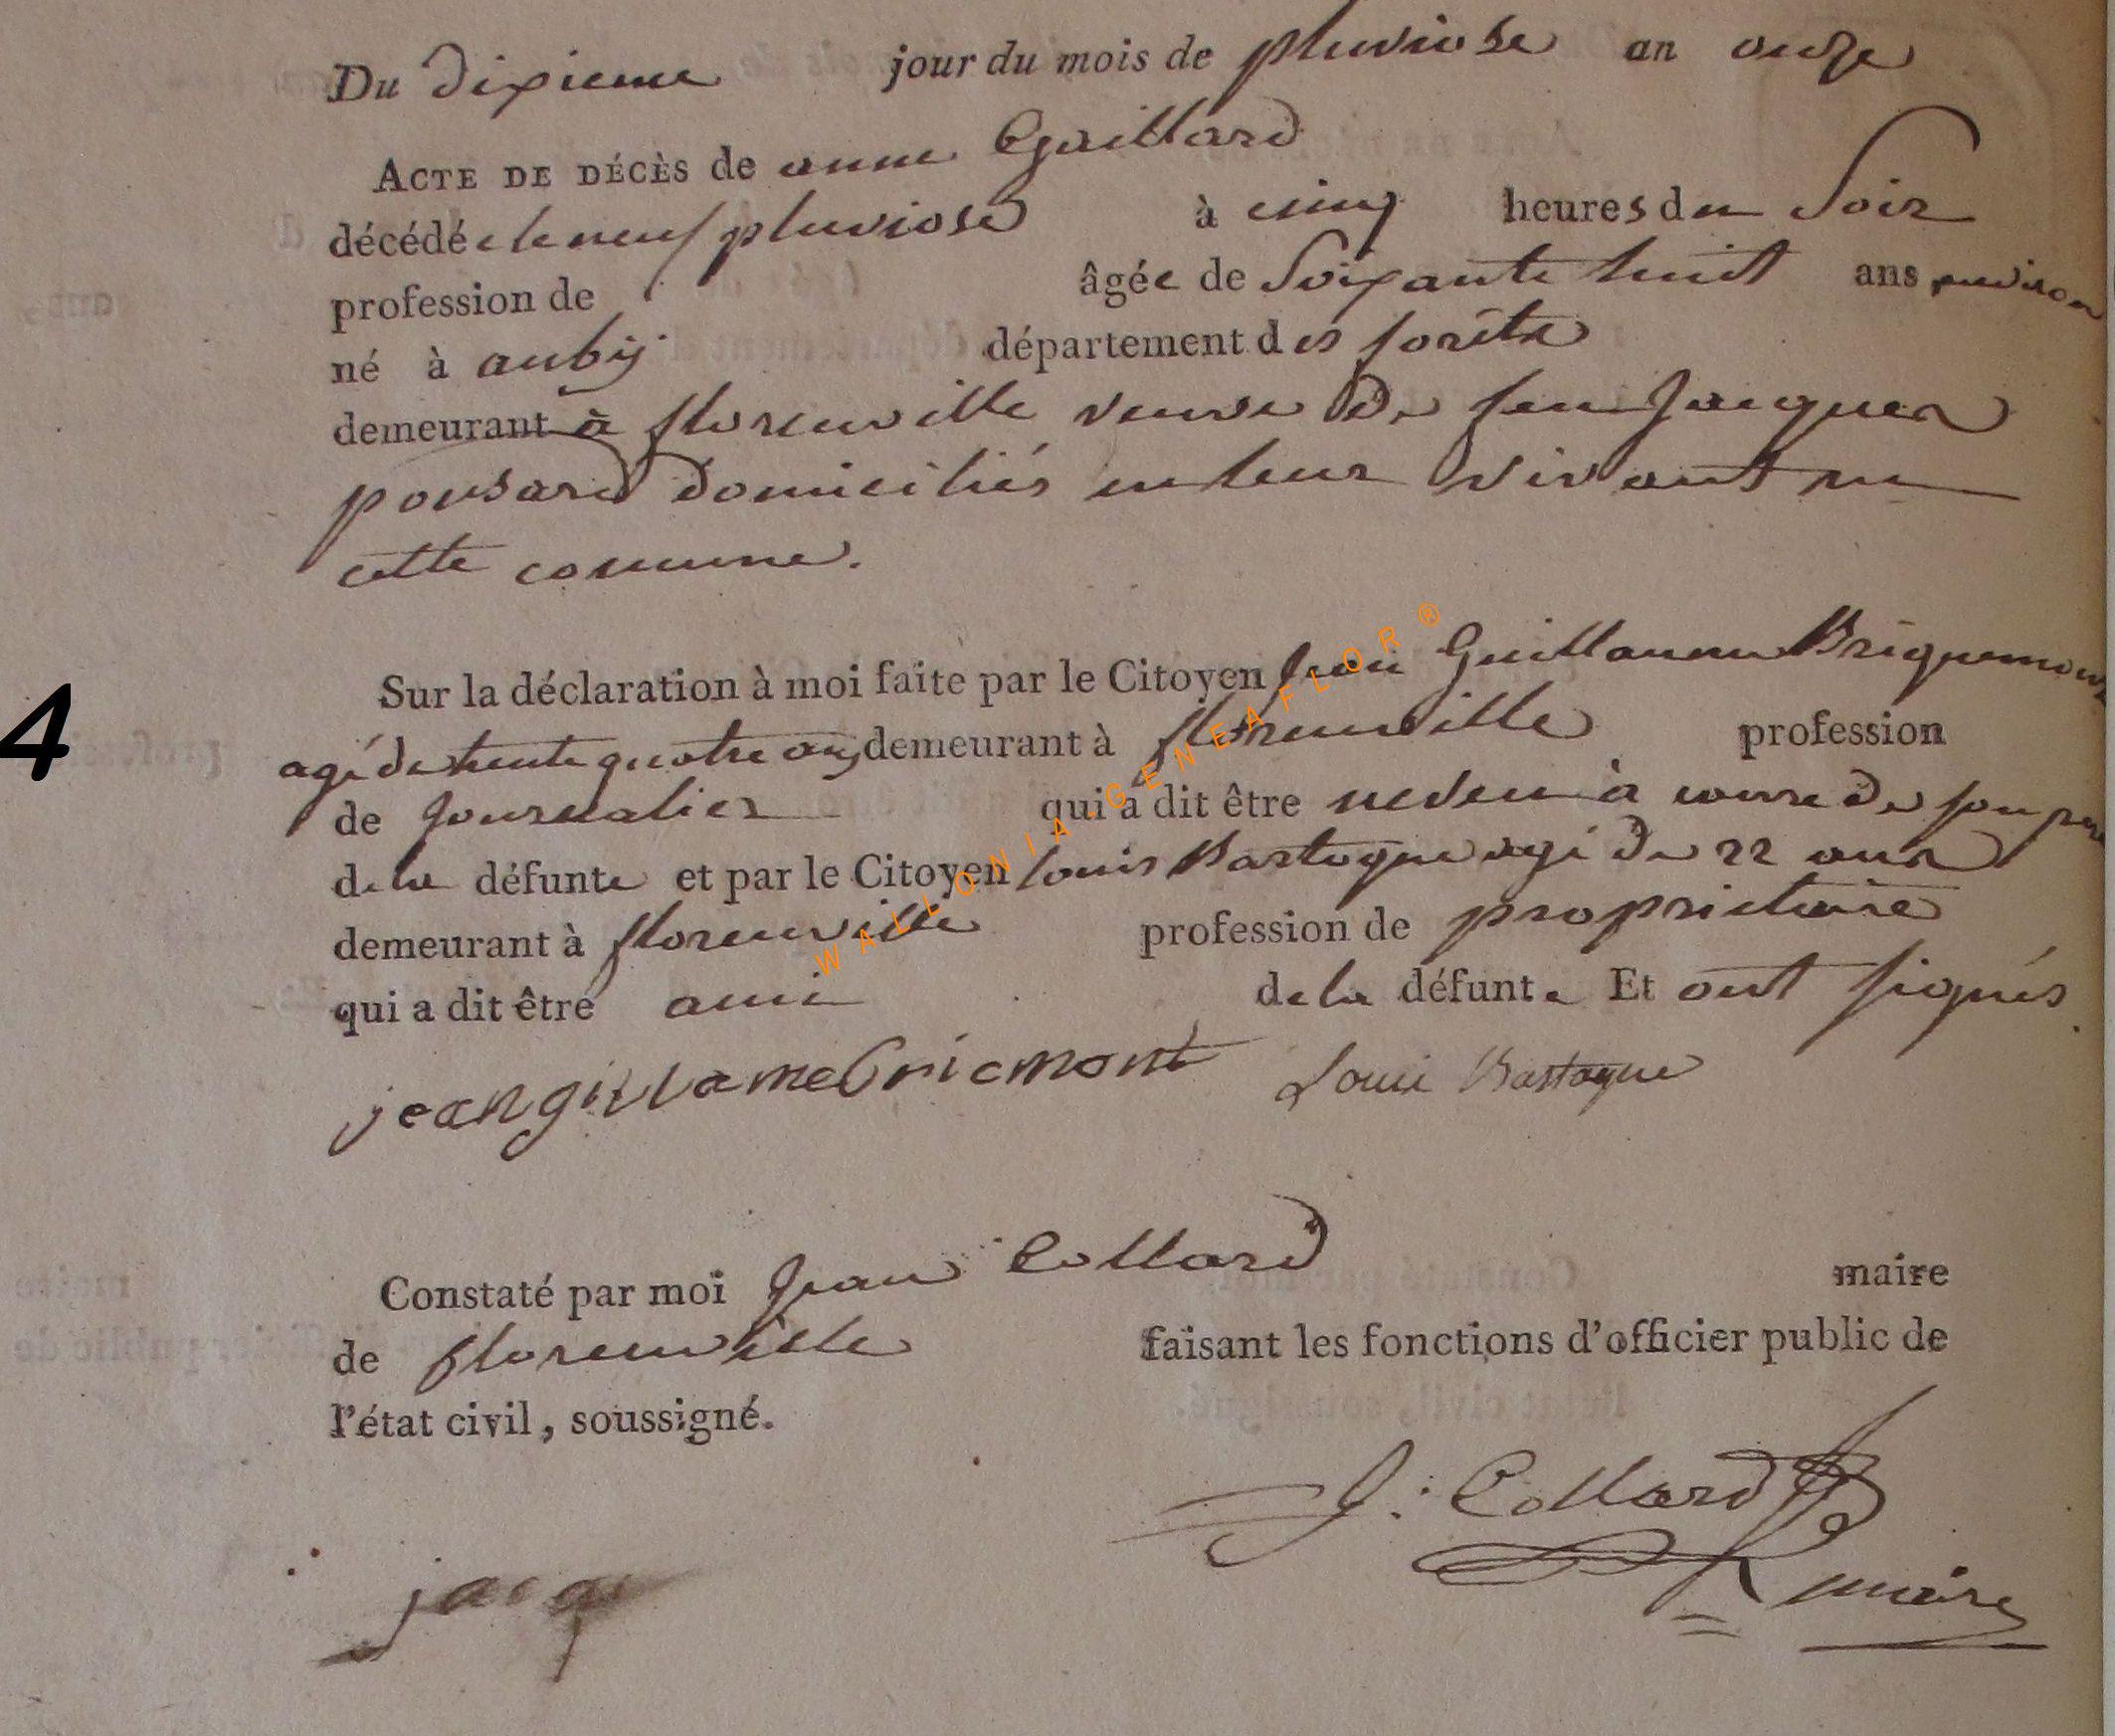 Du dixieme jour du mois de pluviose an onze
ACTE DE DÉCÈS de anne Gaillard
décédée le neuf pluviose à cinq heures du Soir
profession de âgée de Soixante huit ans environ
né à aubij département des forêts
demeurant à florenville veuve de feu Jacques
ponsard domiciliés en leur vivant en
cette comune.
4
Sur la déclaration à moi faite par le Citoyen Jean Guillaume Briquemont
agé de trente quatre ans demeurant à florenville profession
de Journalier qui a dit être neveu à cause de son pere
de la défunte et par le Citoyen Louis Bastogne agé de 22 ans
demeurant à florenville profession de proprietaire
qui a dit être ami de la défunte Et ont signés
WALLONIA-GENEAFLOR®
jean gillame bricmont Louis Bastogne
Constaté par moi Jean Collard maire
de florenville faisant les fonctions d'officier public de
l'état civil, soussigné.
J: Collard
maire
jacq